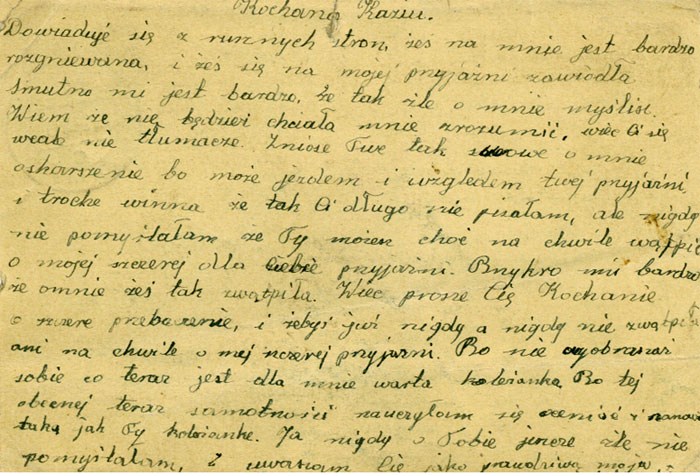 Kochana Kaziu.
Dowiaduje się z runnych stron, żes na mnie jest bardzo
rozgniewana, i żeś się na mojej pryjaźni zawiodła
Smutno mi jest bardzo, że tak źle o mnie myślisz.
Wiem ze nie będziesz chciała mnie zrozumić, więc Ci się
wcale nie tłumacze. Zniose Twe tak o mnie
oskarszenie bo może jezdem i względem twej pryjaźni
i troche winna że tak Ci długo nie pisałam, ale nigdy
nie pomyślałam ze Ty możesz choć na chwile wątpić
o mojej szczerej dla Ciebie pryjaźni. Prykro mi bardzo
że omnie żeś tak zwątpiła. Więc prosze Cię Kochanie
o szczere przebaczenie, i żebyś już nigdy a nigdy nie zwątpiła
ani na chwile o mej szczerej pryjaźni. Bo nie wyobrazasz
sobie co teraz jest dla mnie warta koleżanka Bo tej
obecnej teraz samotności nauczyłam się cenić i
taką jak Ty koleżanke. Ja nigdy o Tobie jeszcze źle nie
pomyślałam, i uwarzam Cię jako prawdziwą moją